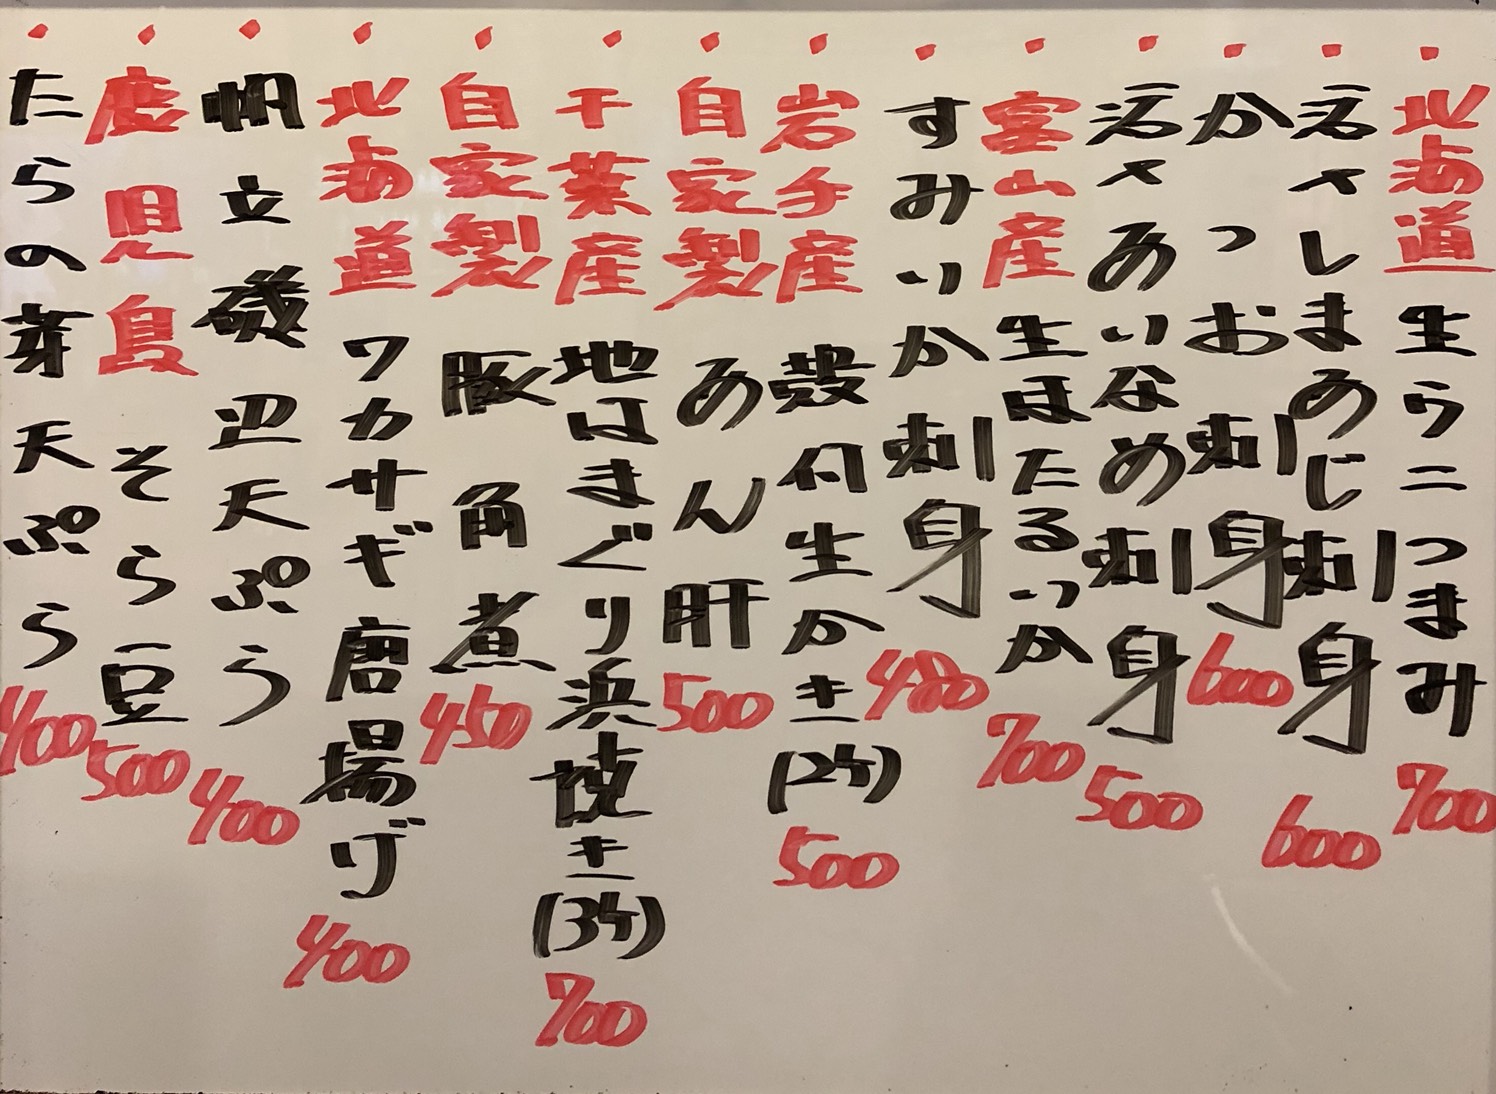 北海道 生ウニつまみ 700
活〆しまあじ刺身 600
かつお刺身 600
活〆あいなめ刺身 500
富山産 生ほたるいか 700
すみいか刺身 480
岩手産 殻付生かき(2ケ) 500
自家製 あん肝 500
千葉産 地はまぐり浜焼き(3ケ) 700
自家製 豚角煮 450
北海道 ワカサギ唐揚げ 400
帆立磯辺天ぷら 400
鹿児島 そら豆 500
たらの芽天ぷら 400